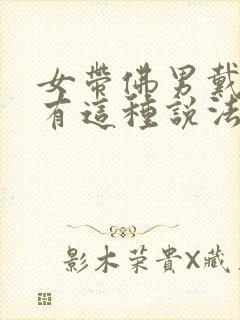 女帶佛男戴
有這種說法
影木荣貴X藏